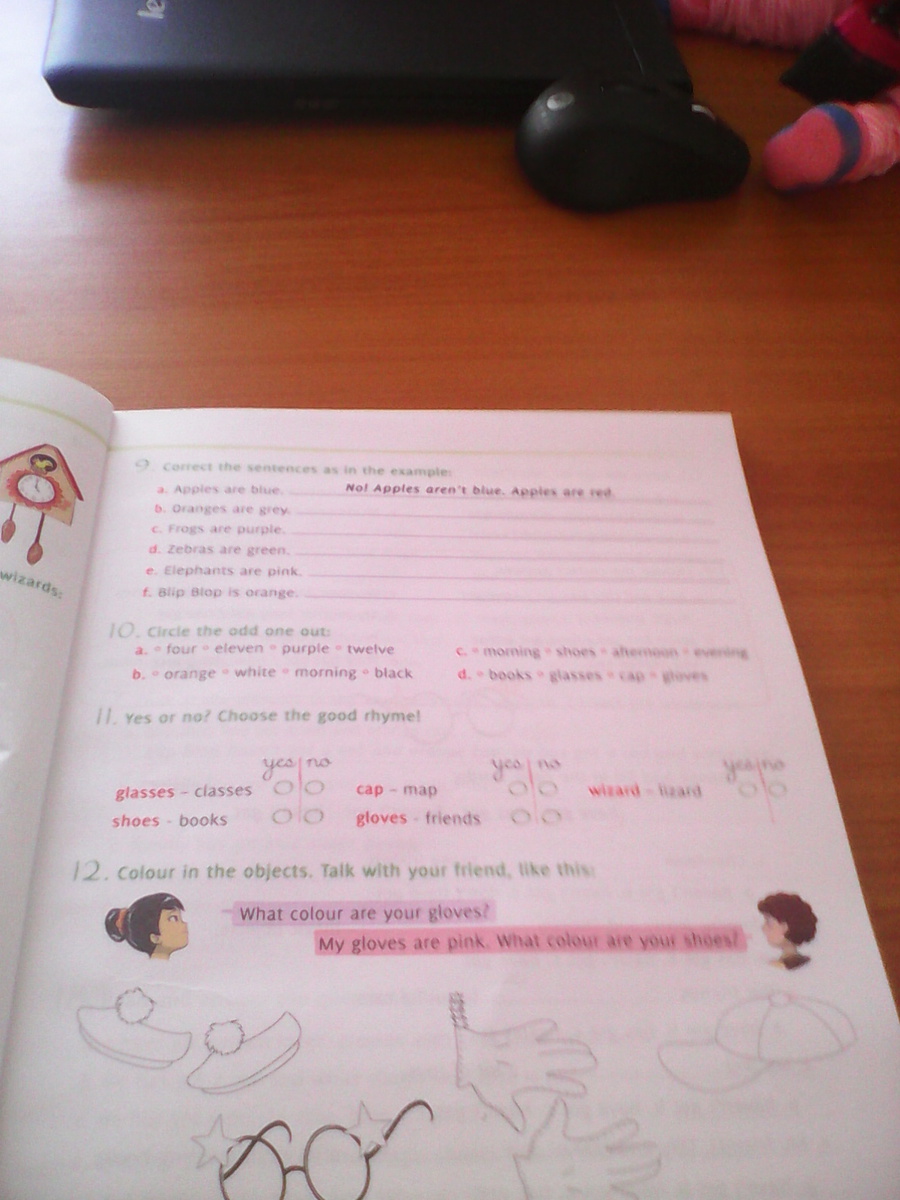 le
wizards:
9. Correct the sentences as in the example:
a. Apples are blue. No! Apples aren't blue. Apples are red.
b. Oranges are grey.
c. Frogs are purple.
d. Zebras are green.
e. Elephants are pink.
f. Blip Blop is orange.
10. Circle the odd one out:
a. ° four ° eleven ° purple ° twelve c. ° morning ° shoes ° afternoon ° evening
b. ° orange ° white ° morning ° black d. ° books ° glasses ° cap ° gloves
11. Yes or no? Choose the good rhyme!
yes no yes no yes no
glasses - classes cap - map wizard - lizard
shoes - books gloves - friends
12. Colour in the objects. Talk with your friend, like this:
What colour are your gloves?
My gloves are pink. What colour are your shoes?